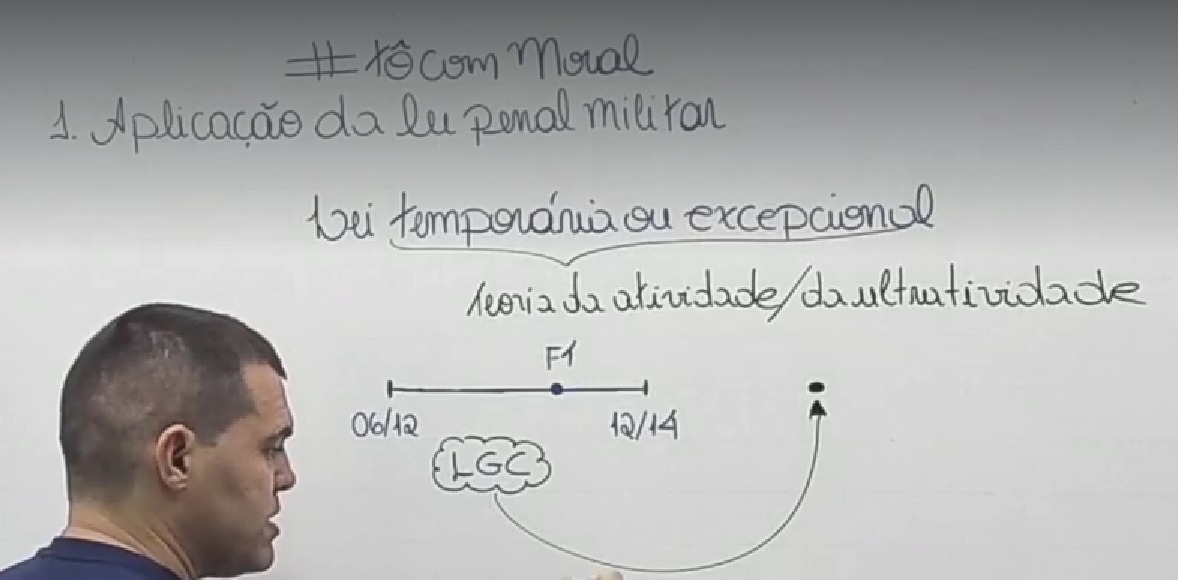 #tôcom Moral
1. Aplicação da lei penal militar
Lei temporária ou excepcional
teoria da atividade/da ultratividade
F1
06/12 12/14
LGC